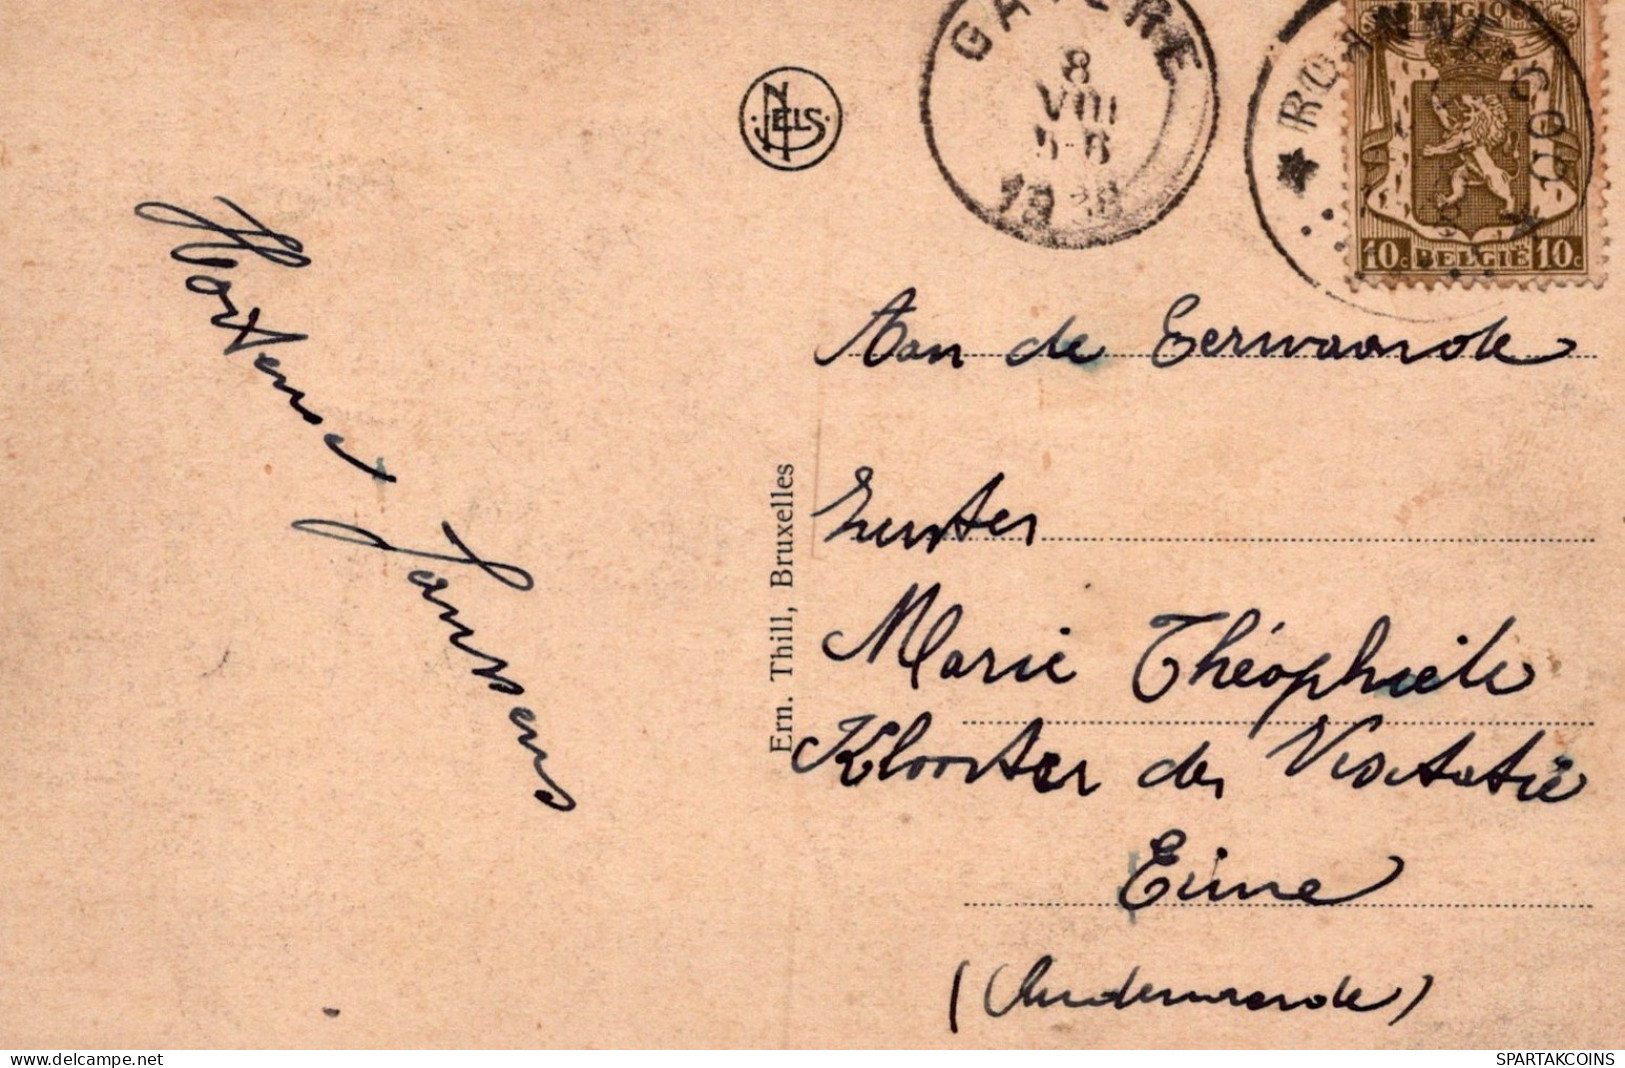 GAVERE
8
VIII
1938
BELGIQUE
10c BELGIË 10c
NELS
Hortense Janssens
Ern. Thill, Bruxelles
Aan de Eerwaarde
Zuster
Marie Théophiele
Klooster der Visitatie
Eine
(Audenaarde)
www.delcampe.net
SPARTAKCOINS